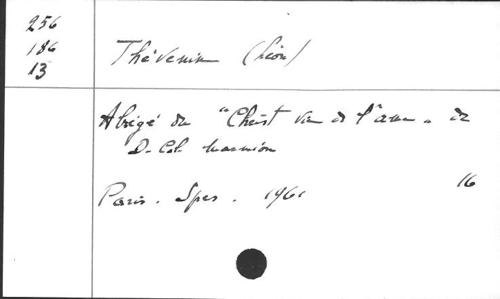 256
186
13
Thévenin (Léon)
Abrégé du "Christ vie de l'âme" de
D. Col. Marmion
Paris. Spes. 1961
16